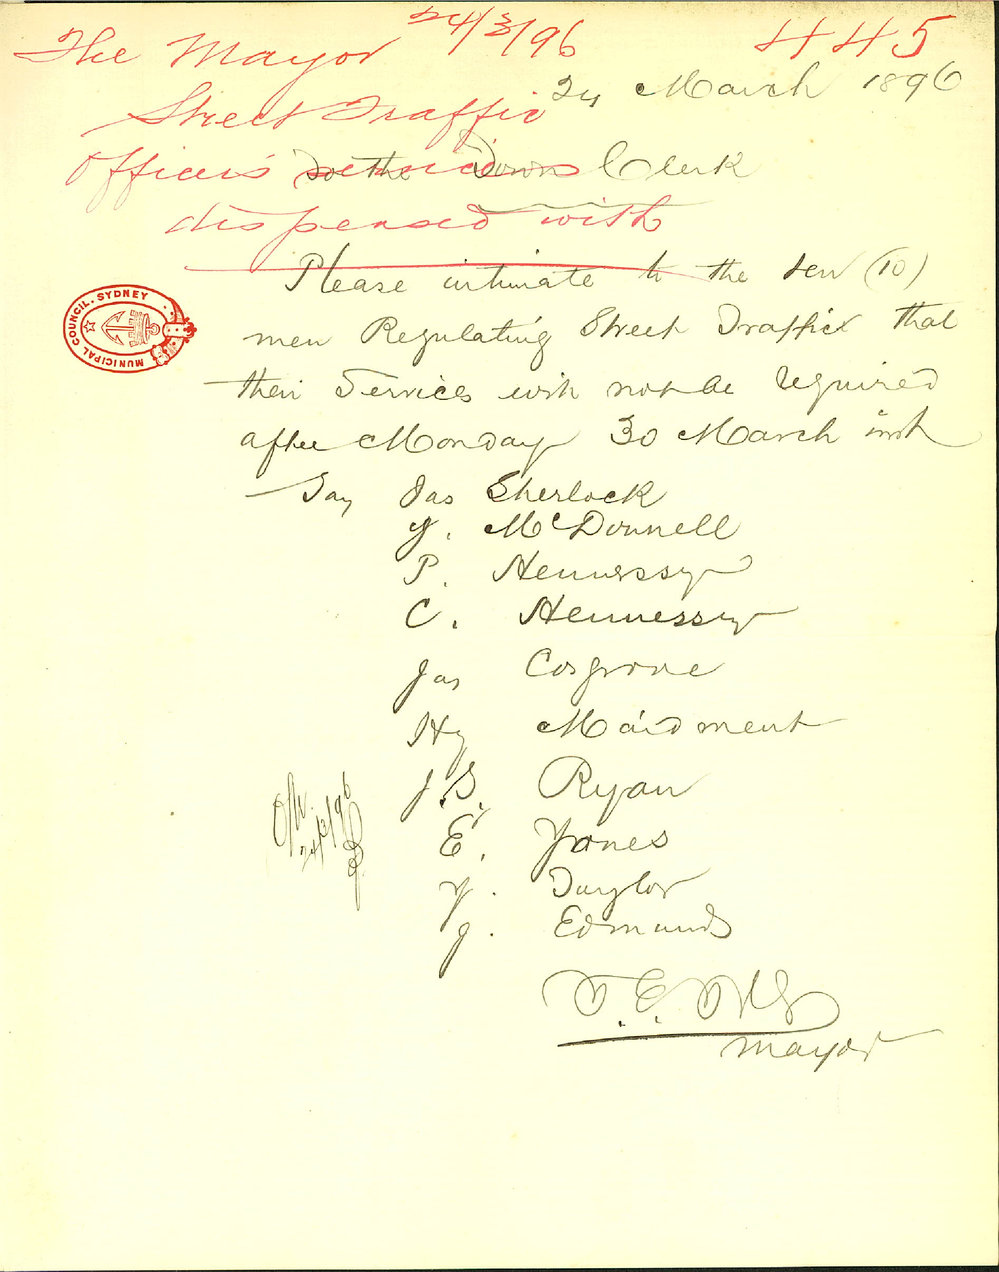 24/3/96
The Mayor
445
Street Traffic
24 March 1896
Officers services
To the Town Clerk
dispensed with
Please intimate to the ten (10)
men Regulating Street Traffic that
their Services will not be required
after Monday 30 March inst
Say Jas Sherlock
J. McDonnell
P. Hennessy
C. Hennessy
Jas Cosgrove
Hy Maidment
J.S. Ryan
E. Jones
Taylor
J. Edmunds
Mayor
MUNICIPAL COUNCIL. SYDNEY
24/3/96